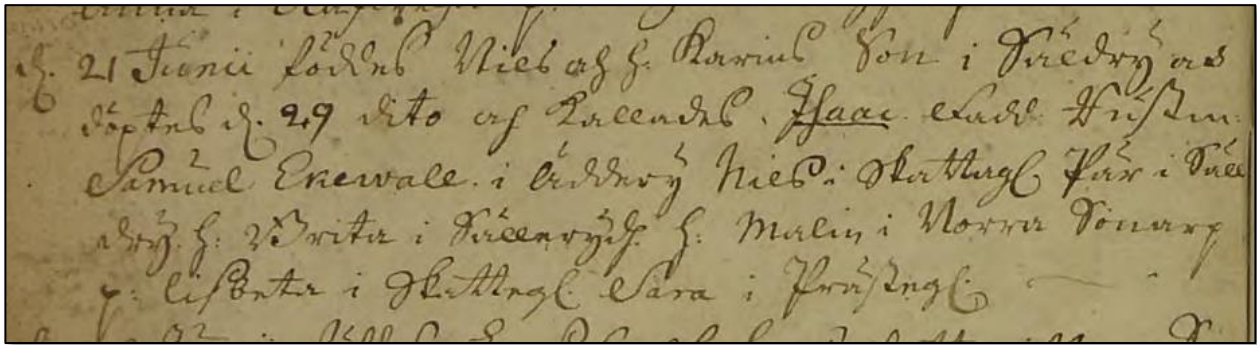 d. 21 Junii föddes Niels och h. Karins Son i Säldry as
döptes d. 29 dito och Kallades. Isaac. Fadd. Hustin.
Samuel Enewall. i Äddery Niels i Skattagl. Pär i Säll
dry. h: Brita i Sällerydh. h: Malin i Norra Sonarp
p: lisbeta i Skattegl. Sara i Prästegl.